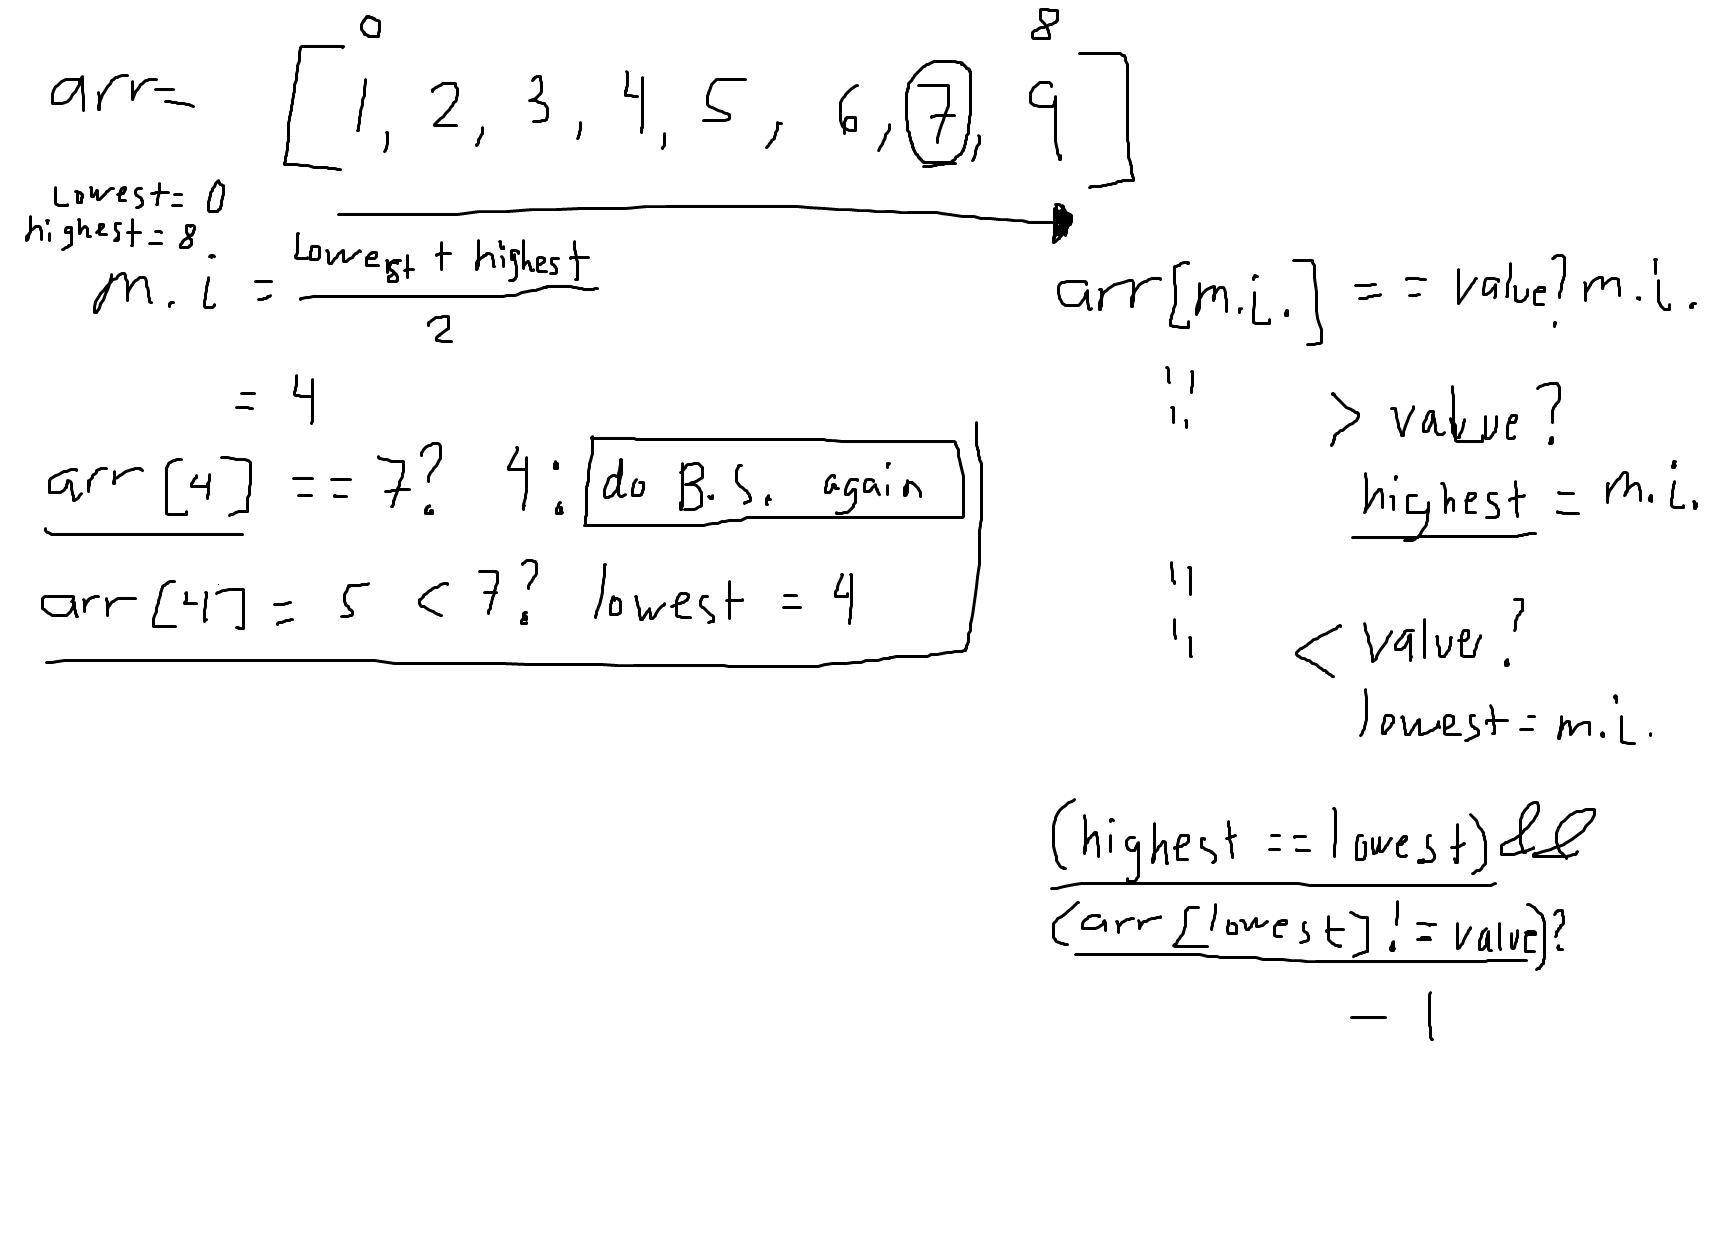 0 8
arr= [1, 2, 3, 4, 5, 6, 7, 9]
Lowest= 0
highest = 8
m.i = Lowest + highest
2
= 4
arr [4] == 7? 4: do B.S. again
arr [4] = 5 < 7? lowest = 4
arr[m.i.] == value? m.i.
" > value?
highest = m.i.
" < value?
lowest = m.i.
(highest == lowest) &&
(arr [lowest] != value)?
- 1